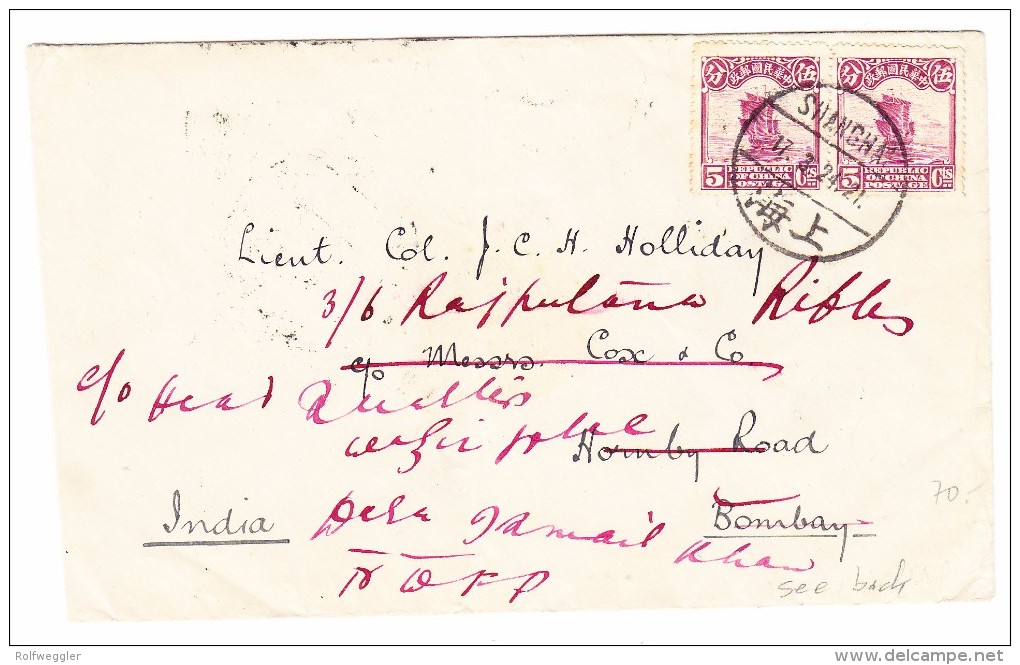 中華民國郵政 中華民國郵政
分 伍 分 伍
5 REPUBLIC OF CHINA POSTAGE Cts 5 REPUBLIC OF CHINA POSTAGE Cts
SHANGHAI
17. 3. 24. 21.
海上
Lieut. Col. J. C. H. Holliday
3/6 Rajputana Rifles
c/o Messrs. Cox & Co
c/o Head Quatters
Hornby Road
India
Bombay
Dera Ismail Khan
N W F P
70.-
see back
Rolfweggler
www.delcampe.net